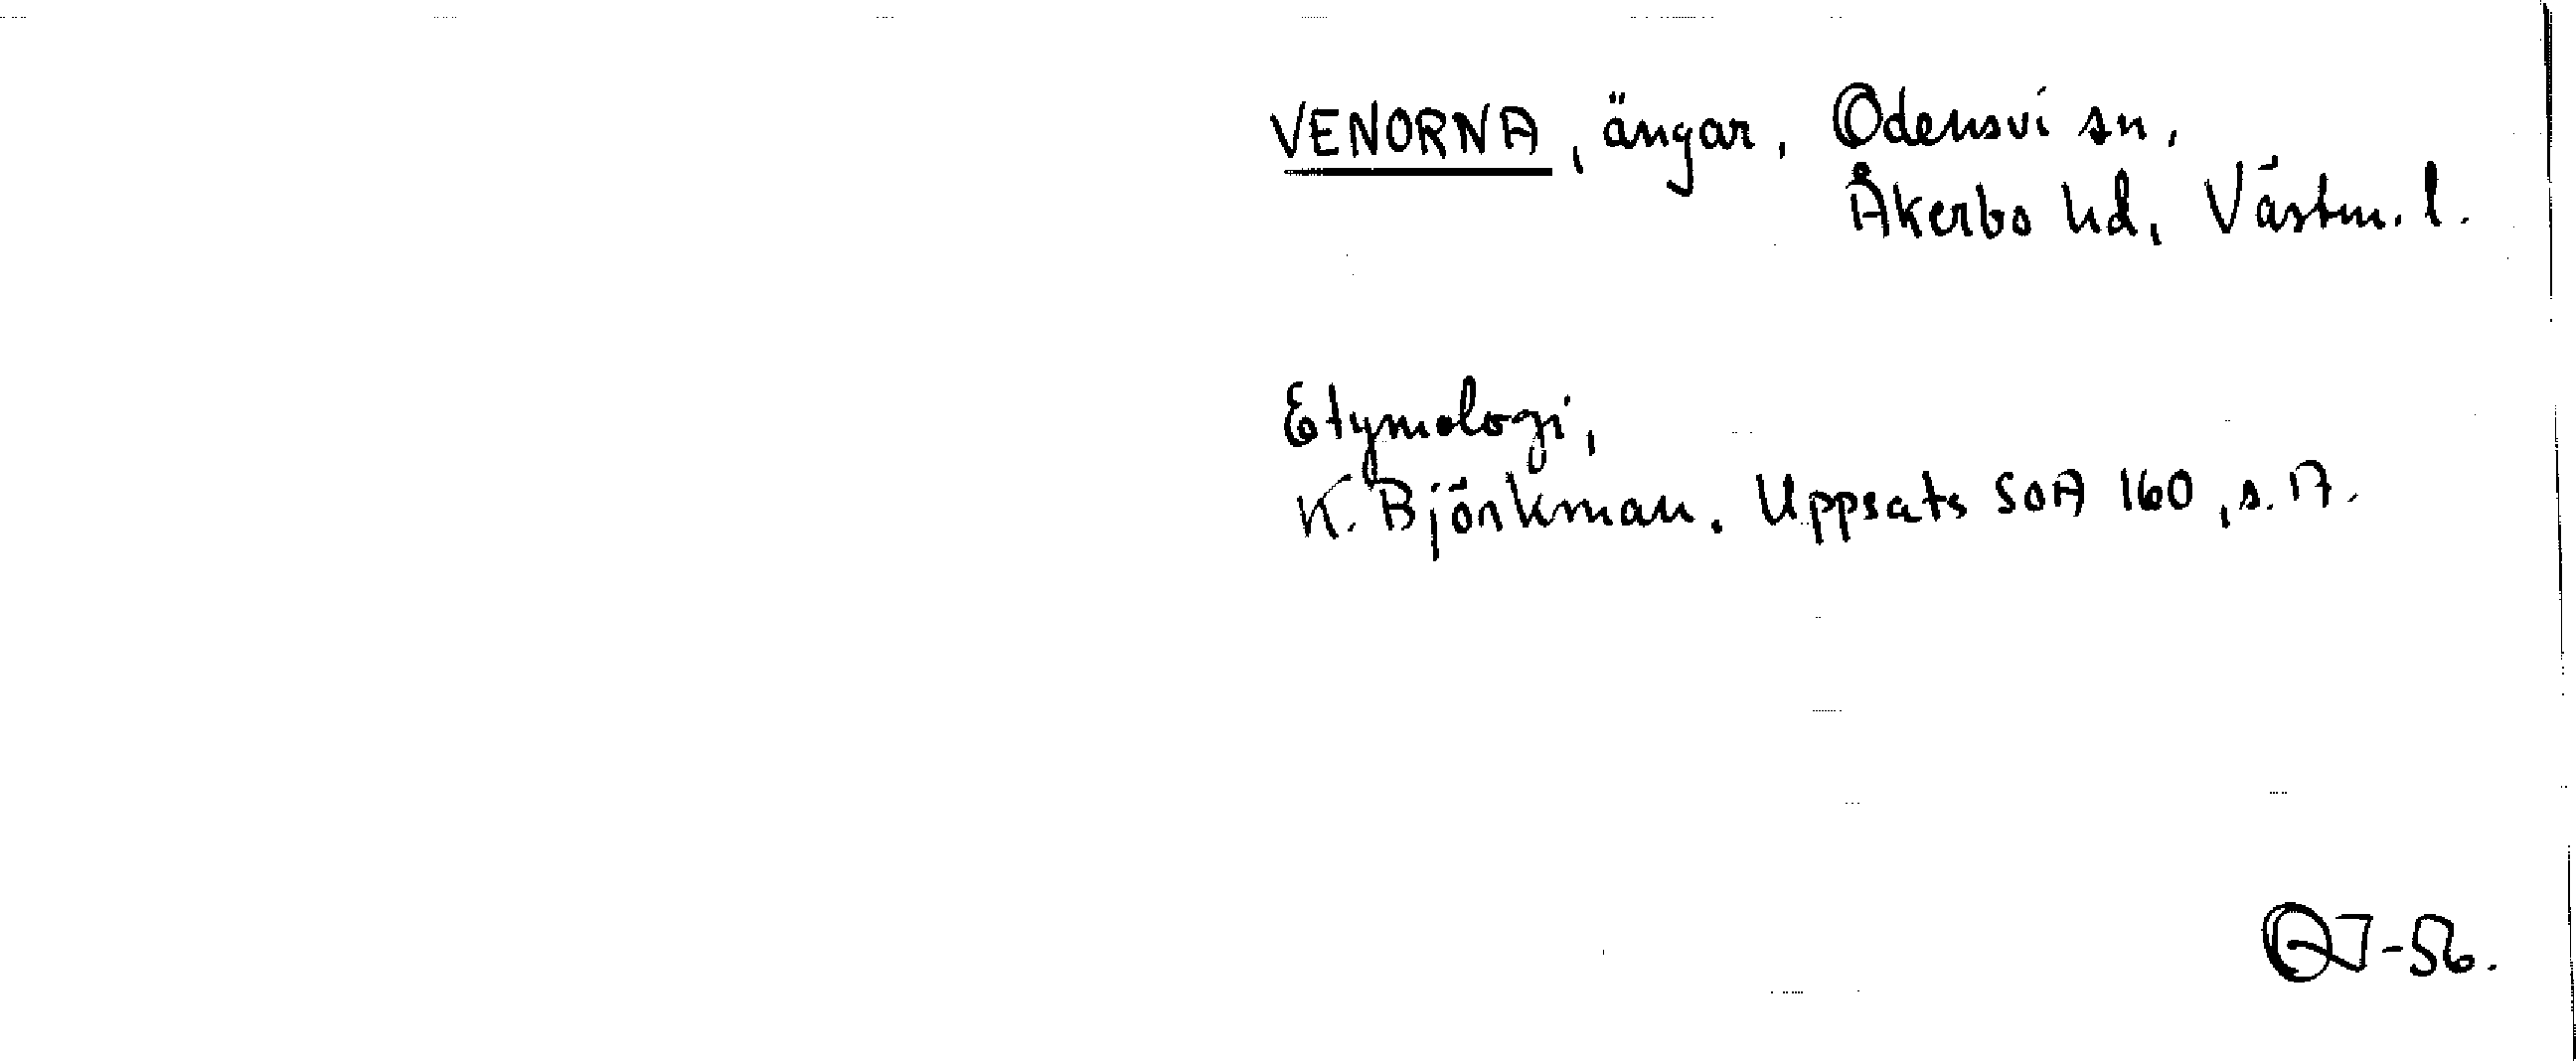 VENORNA, ängar, Odensvi sn,
Åkerbo hd, Västm. l.
Etymologi,
K. Björkman. Uppsats SOA 160, s. 17.
-56.